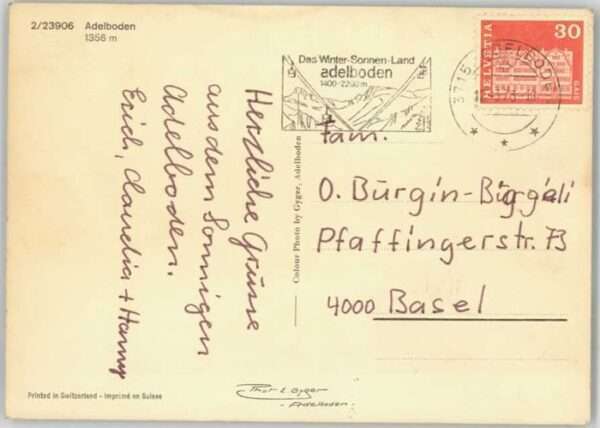 2/23906 Adelboden
1356 m
Das Winter-Sonnen-Land
adelboden
1400-2200 m
HELVETIA
30
3715 ADELBODEN
Herzliche Grüsse
aus dem Sonnigen
Adelboden.
Erich, Claudia + Hanny
Colour Photo by Gyger, Adelboden
Fam.
O. Bürgin-Biggeli
Pfaffingerstr. 73
4000 Basel
Printed in Switzerland - Imprimé en Suisse
Photo E. Gyger
- Adelboden -